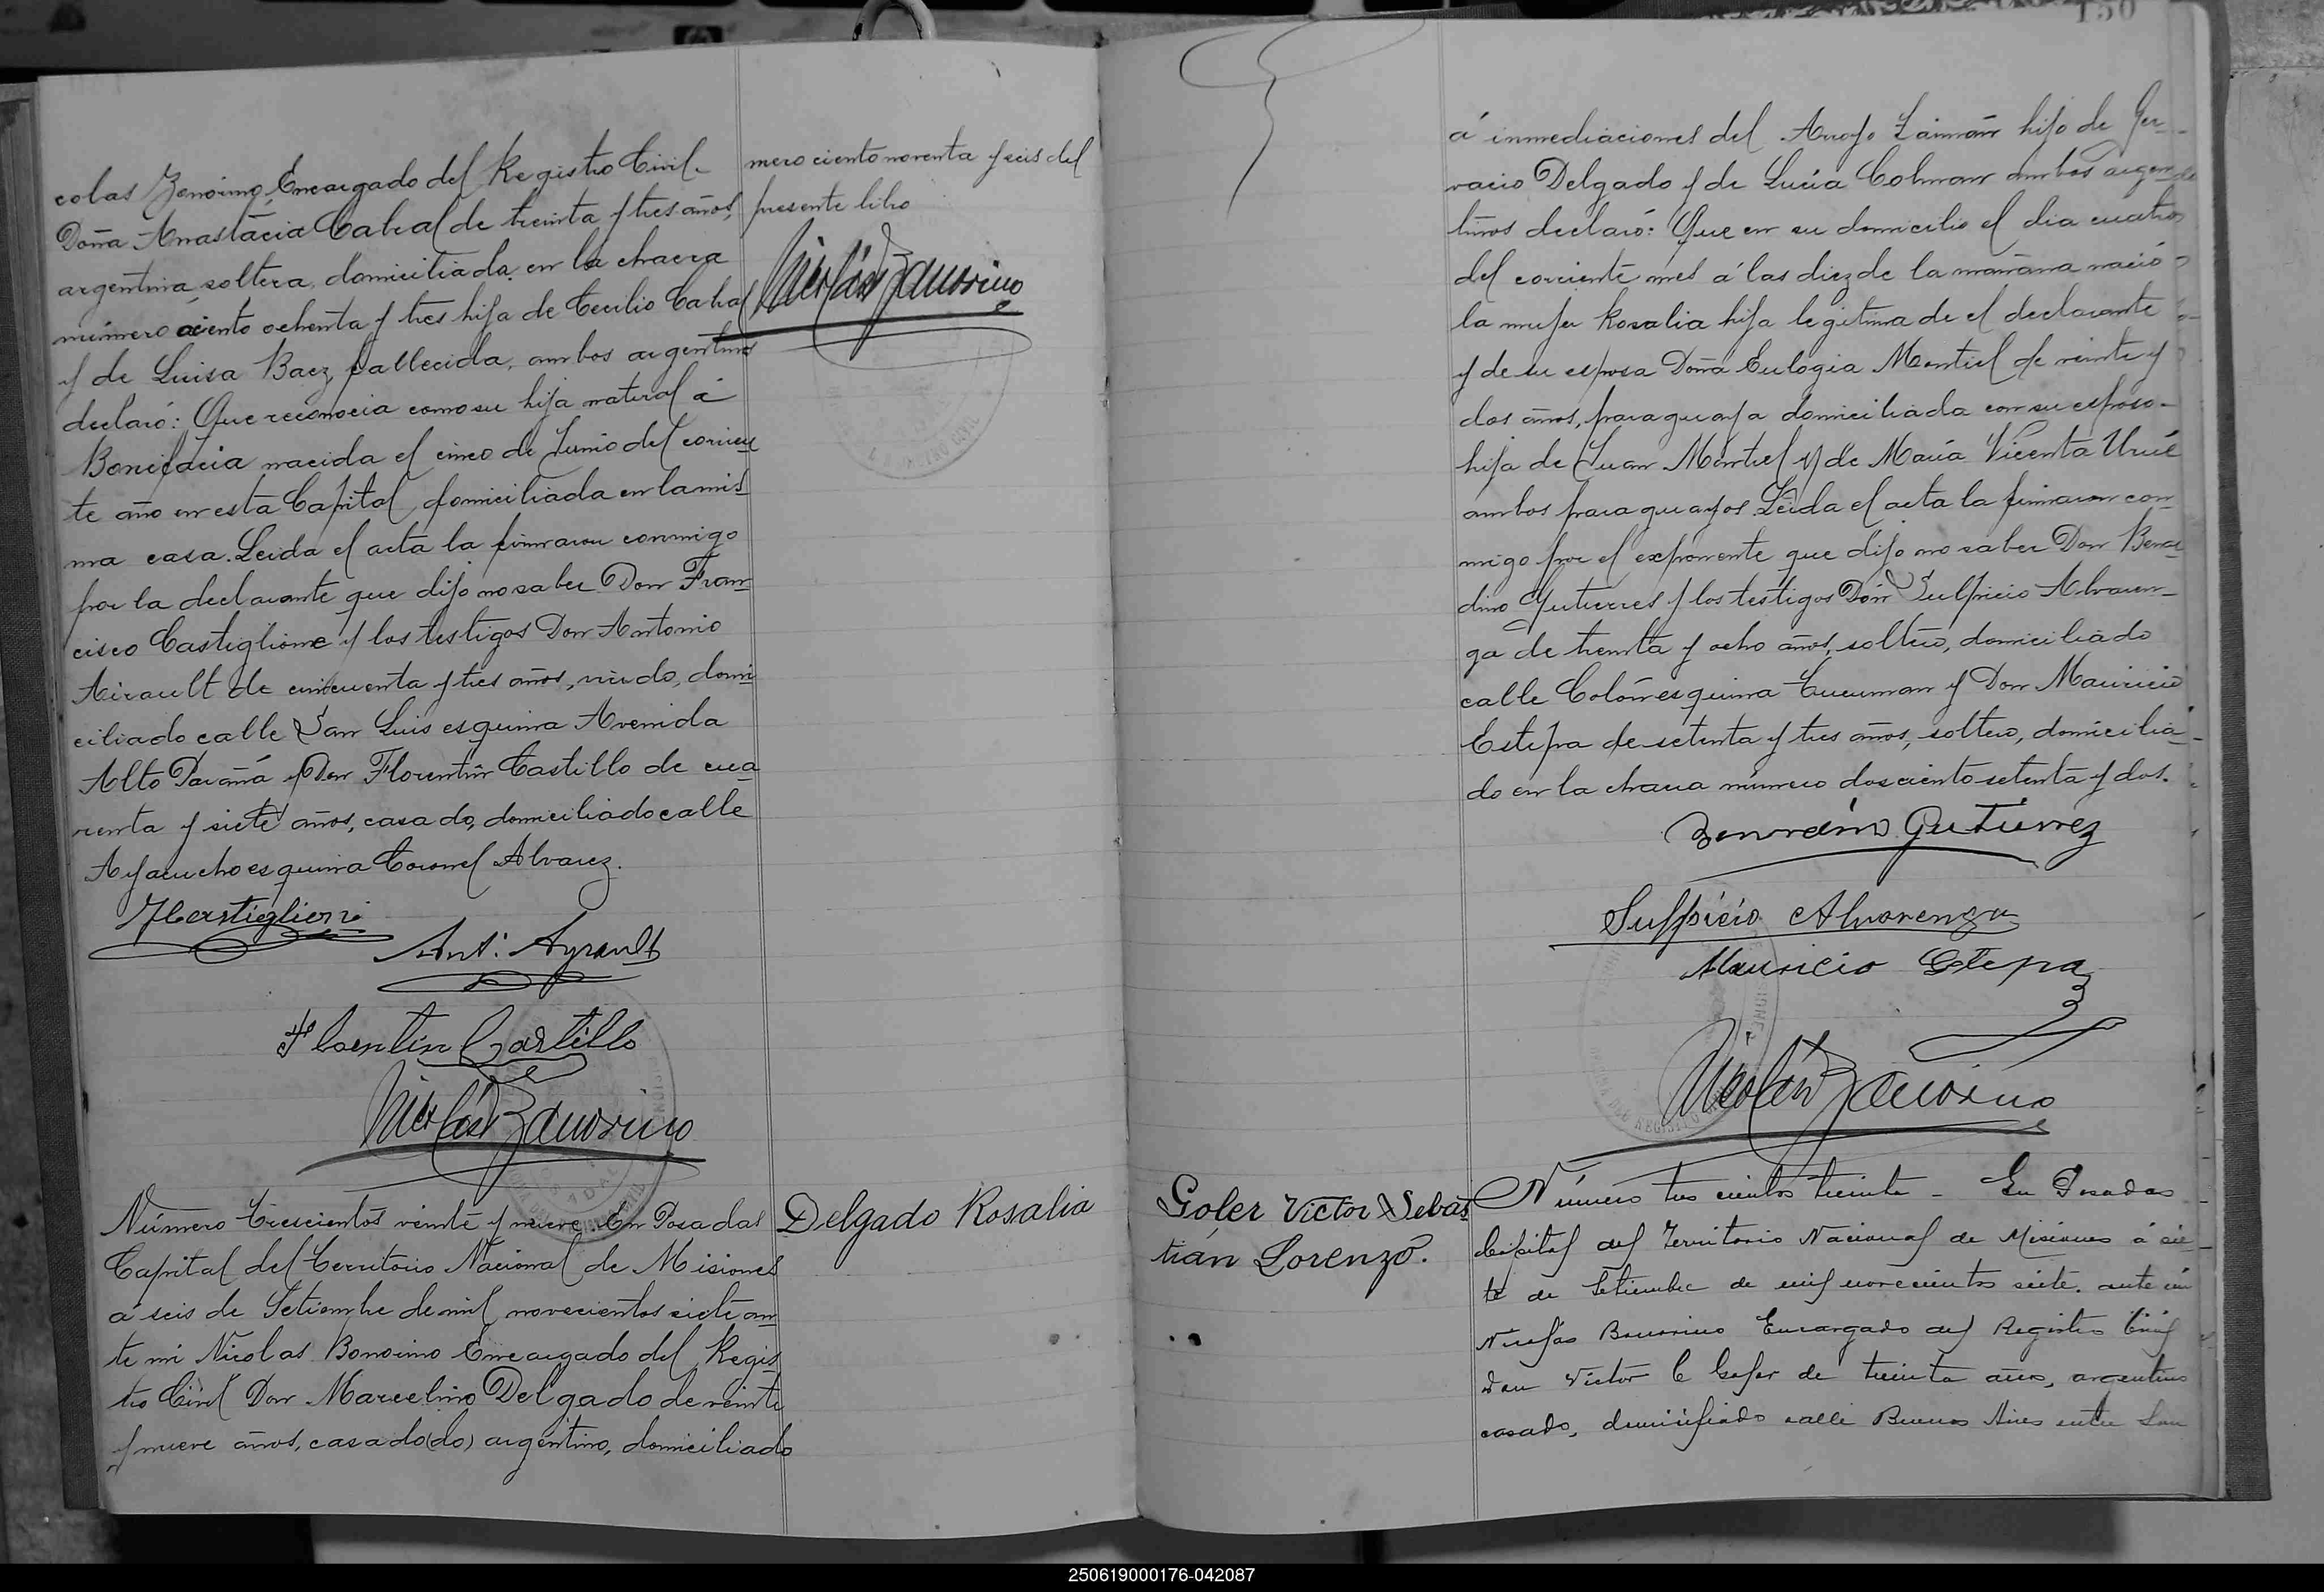 colas Bonorino, Encargado del Registro Civil.
Doña Anastacia Cabral de treinta y tres años,
argentina, soltera, domiciliada en la chacra
número ciento ochenta y tres hija de Cecilio Cabral
y de Luisa Baez, fallecida, ambos argentinos
declaró: Que reconocia como su hija natural á
Bonifacia nacida el cinco de Junio del corrien
te año en esta Capital, domiciliada en la mis
ma casa. Leida el acta la firmaron conmigo
por la declarante que dijo no saber Don Fran
cisco Castiglione y los testigos Don Antonio
Airault de cincuenta y tres años, viudo, domi
ciliado calle San Luis esquina Avenida
Alto Paraná y Don Florentin Castillo de cua
renta y siete años, casado, domiciliado calle
Ayacucho esquina Coronel Alvarez.
Castiglioni
Ant: Ayrault
Florentin Castillo
Nicolás Bonorino
mero ciento noventa y seis del
presente libro
Nicolás Bonorino
Número trescientos veinte y nueve. En Posadas
Capital del Territorio Nacional de Misiones
á seis de Setiembre de mil novecientos siete an
te mi Nicolas Bonorino Encargado del Regis
tro Civil Don Marcelino Delgado de veinte
y nueve años, casado(do) argentino, domiciliado
Delgado Rosalia
150
á inmediaciones del Arroyo Zaimán hijo de Ger-
vacio Delgado y de Lucía Colman ambos argen
tinos declaró: Que en su domicilio el dia cuatro
del corriente mes á las diez de la mañana nació
la mujer Rosalia hija legitima de el declarante
y de su esposa Doña Eulogia Montiel de veinte y
dos años, paraguaya domiciliada con su esposo-
hija de Juan Montiel y de María Vicenta
ambos paraguayos. Leida el acta la firmaron con-
migo por el exponente que dijo no saber Don Bernar
dino Gutierres y los testigos Don Sulpicio Alvaren-
ga de treinta y ocho años, soltero, domiciliado
calle Colón esquina Tucuman y Don Mauricio
Estepa de setenta y tres años, soltero, domicilia-
do en la chacra número doscientos setenta y dos.
Bernardino Gutierrez
Sulpicio Alvarenga
Mauricio Estepa
Nicolás Bonorino
Goler Victor Sebas
tián Lorenzo.
Número tres cientos treinta - En Posadas
Capital del Territorio Nacional de Misiones á sie-
te de Setiembre de mil novecientos siete. ante mi
Nicolás Bonorino Encargado del Registro Civil
Don Victor C Goler de treinta años, argentino
casado, domiciliado calle Buenos Aires entre San
250619000176-042087